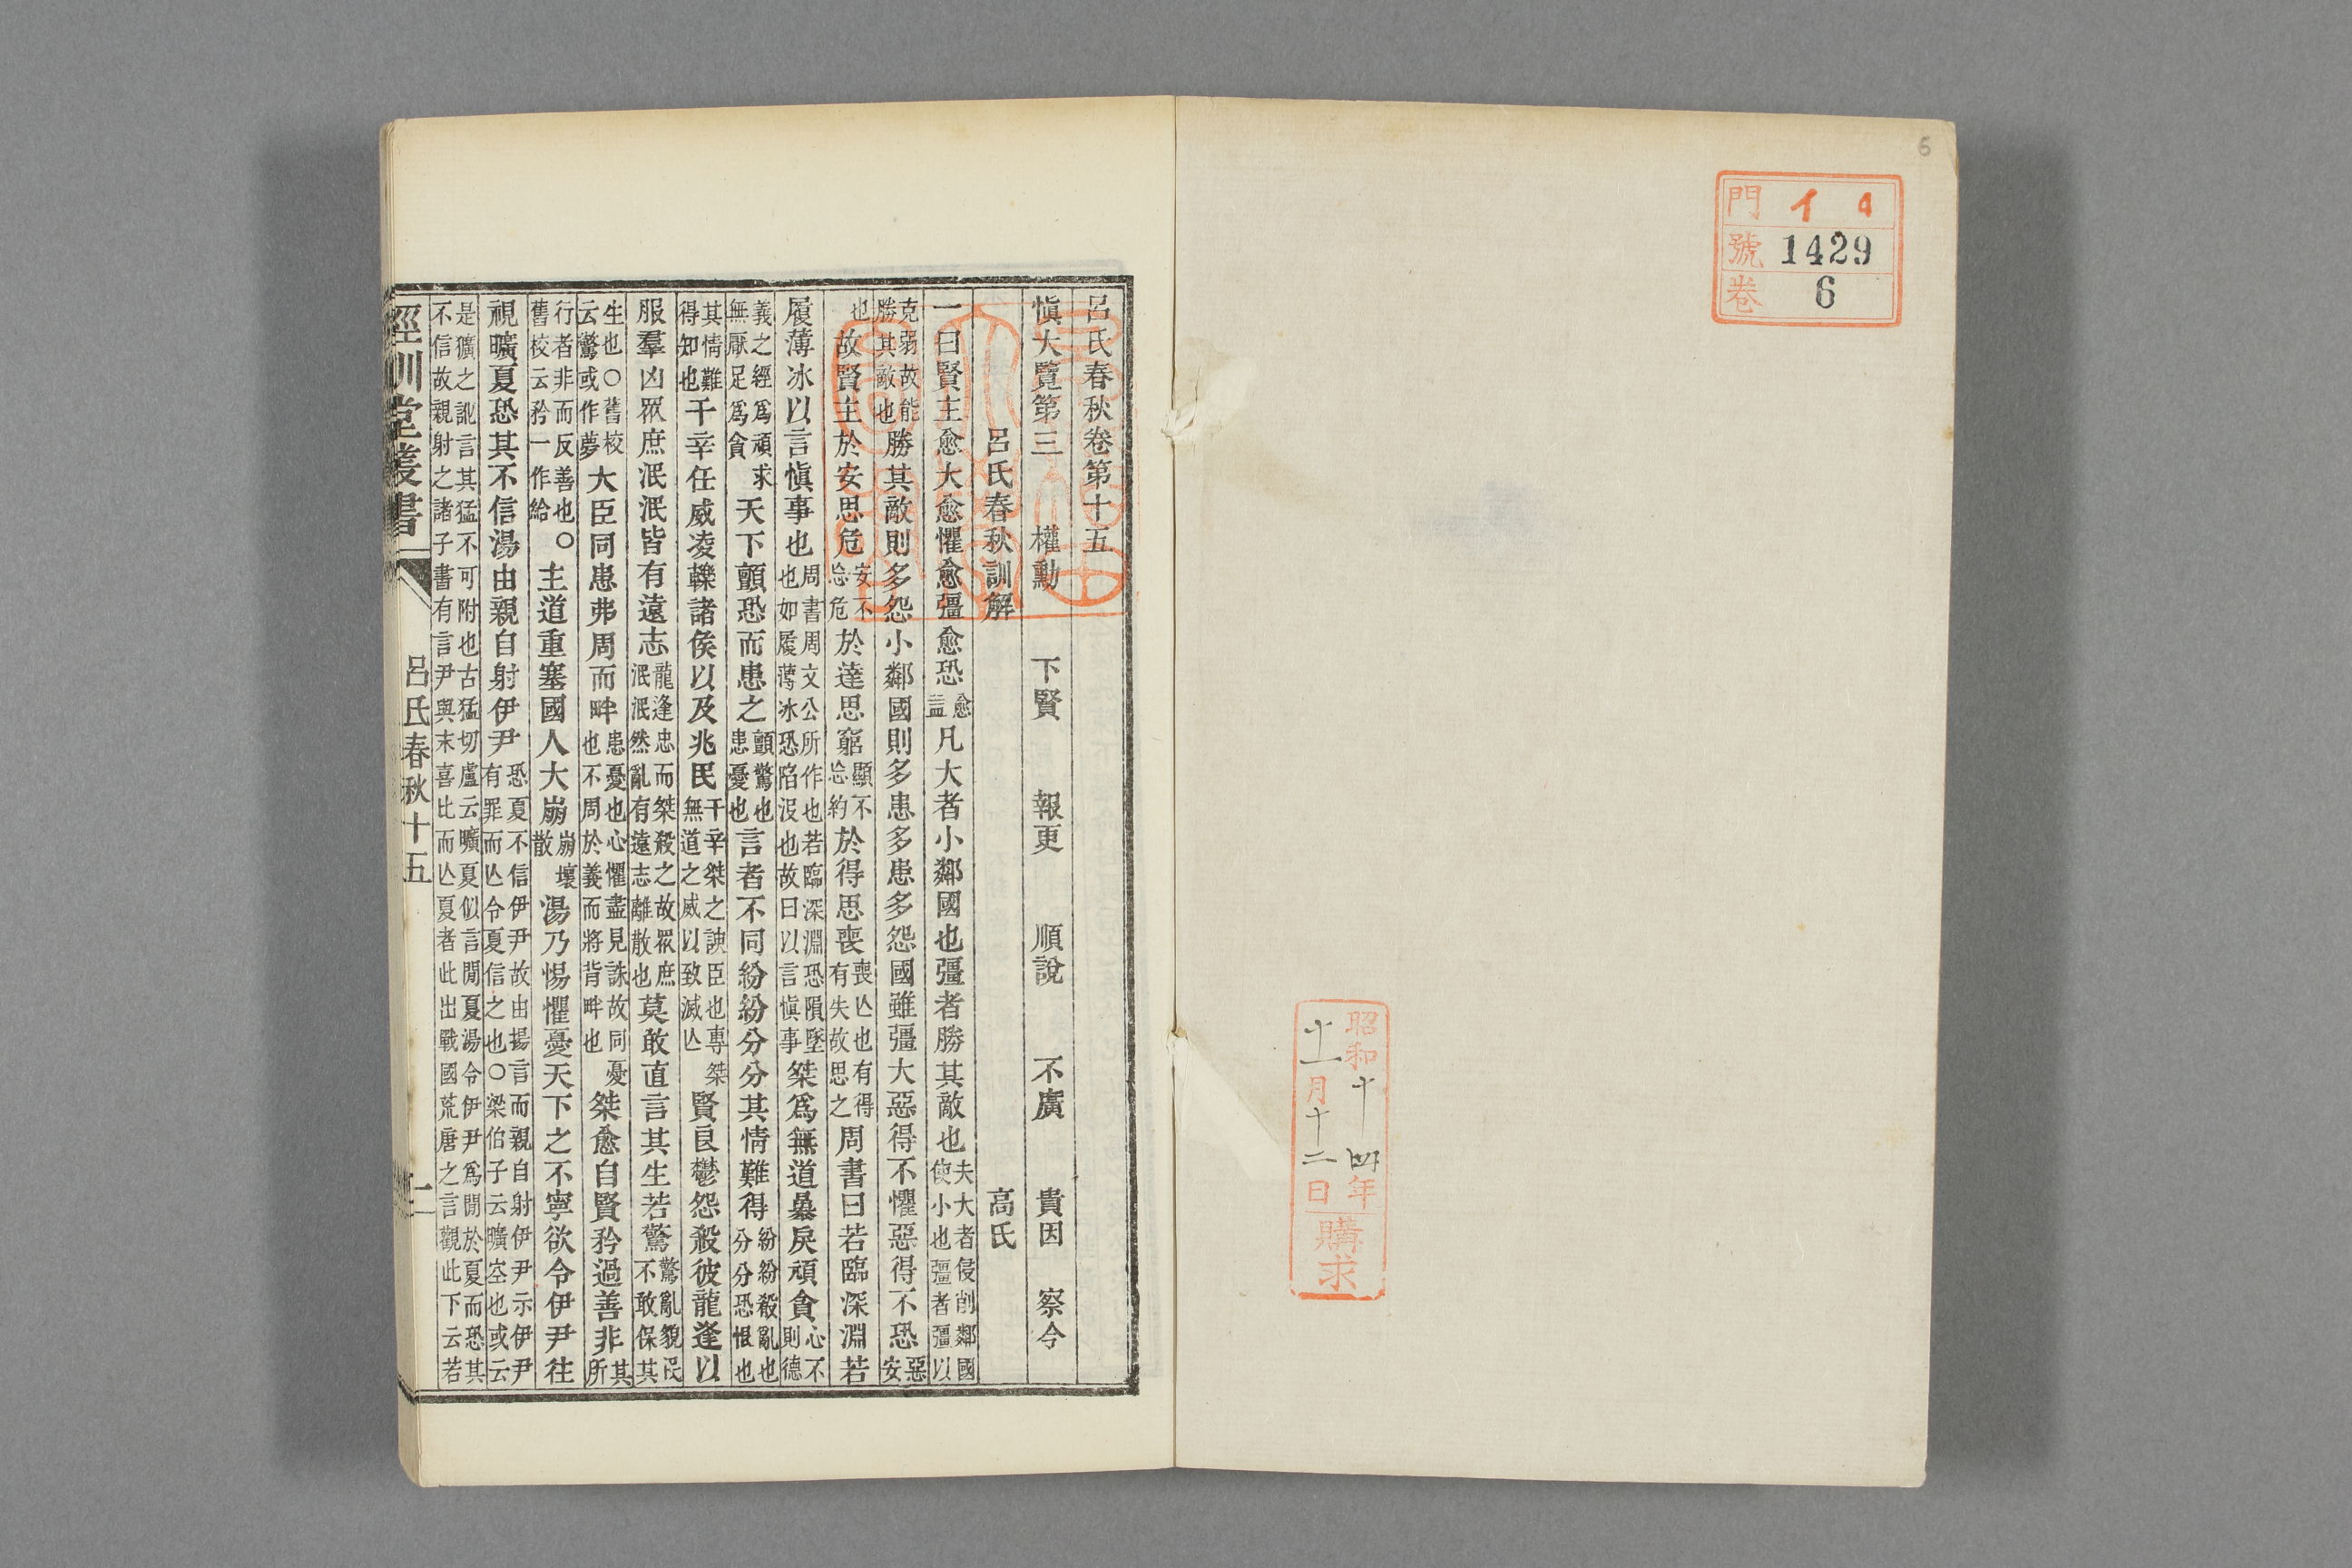 門 イ 4
號 1429
卷 6
昭和十四年
十一月十二日
購求
呂氏春秋卷第十五
慎大覽第三 權勳 下賢 報更 順說 不廣 貴因 察今
呂氏春秋訓解 高氏
一曰賢主愈大愈懼愈彊愈恐愈益凡大者小鄰國也彊者勝其敵也夫大者侵削鄰國使小也彊者彊以
克弱故能勝其敵也勝其敵則多怨小鄰國則多患多患多怨國雖彊大惡得不懼惡得不恐惡安
也故賢主於安思危安不忘危於達思窮顯不忘約於得思喪喪亾也有得有失故思之周書曰若臨深淵若
履薄冰以言慎事也周書周文公所作也若臨深淵恐隕墜也如履薄冰恐陷沒也故曰以言慎事桀爲無道暴戾頑貪心不則德
義之經爲頑求無厭足爲貪天下顫恐而患之顫驚也患憂也言者不同紛紛分分其情難得紛紛殽亂也分分恐恨也
其情難得知也干辛任威凌轢諸侯以及兆民干辛桀之諛臣也專桀無道之威以致滅亾賢良鬱怨殺彼龍逢以
服羣凶眾庶泯泯皆有遠志龍逢忠而桀殺之故眾庶泯泯然亂有遠志離散也莫敢直言其生若驚驚亂貌民不敢保其
生也○舊校云驚或作夢大臣同患弗周而畔患憂也心懼盡見誅故同憂也不周於義而將背畔也桀愈自賢矜過善非其所
行者非而反善也舊校云矜一作給○主道重塞國人大崩崩壞散湯乃惕懼憂天下之不寧欲令伊尹往
視曠夏恐其不信湯由親自射伊尹恐夏不信伊尹故由揚言而親自射伊尹示伊尹有罪而亾令夏信之也○梁伯子云曠空也或云
是獷之訛言其猛不可附也古猛切盧云曠夏似言閒夏湯令伊尹爲閒於夏而恐其不信故親射之諸子書有言尹與末喜比而亾夏者此出戰國荒唐之言觀此下云若
經訓堂叢書 呂氏春秋十五 一
6